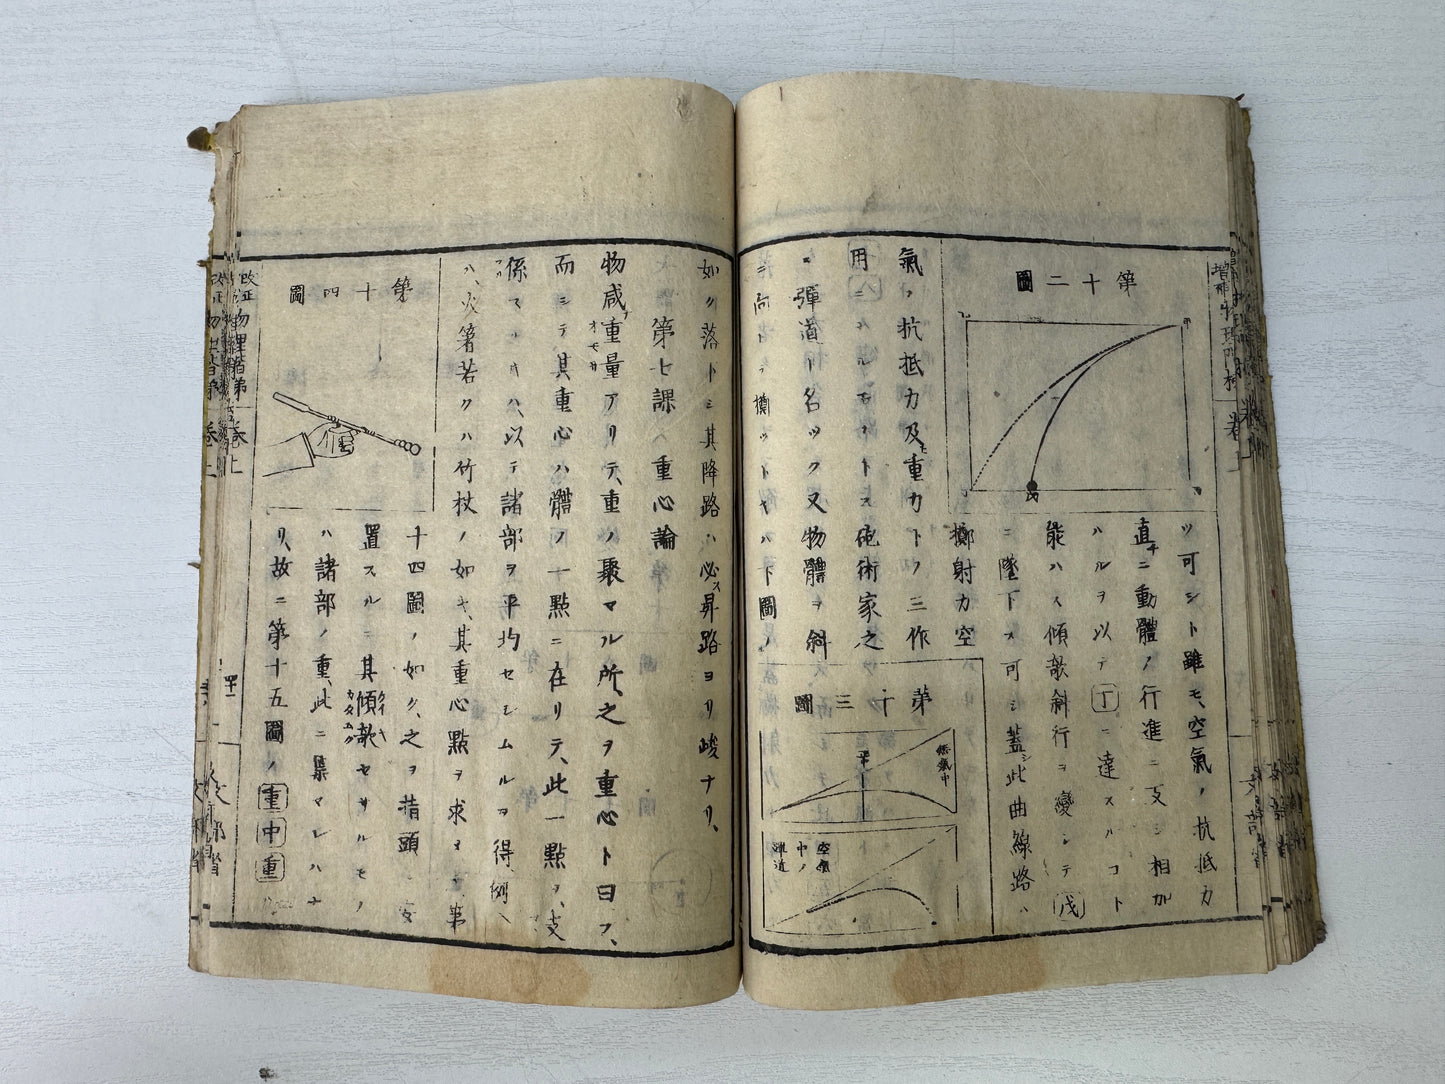 第十二圖
ツ可シト雖モ、空氣ノ抗抵力
直チニ動體ノ行進ニ支ヘ相加
ハルヲ以テ丁ニ達スルコト
能ハス傾欹斜行ヲ變シテ戊
ニ墜下ス可シ蓋シ此曲線路ハ
擲射力空
氣ノ抗抵力及ヒ重力トノ三作
用ニ
砲術家之
彈道ト名ツク又物體ヲ斜
ニ向
下圖ノ
第十三圖
空氣中ノ彈道
如ク落下シ其降路ハ必ス昇路ヨリ峻ナリ、
第七課 重心論
物咸ナ重量アリテ、重ノ聚マル所、之ヲ重心ト曰フ、
オモサ
而シテ其重心ハ體ノ一點ニ在リテ、此一點ヲ支
以テ諸部ヲ平均セシムルヲ得、例ヘ
ハ、火箸若クハ竹杖ノ如キ、其重心點ヲ求ヨ 第
第十四圖
十四圖ノ如ク、之ヲ指頭ニ安
置スルニ其傾欹セサルモノ
ハ諸部ノ重、此ニ集マレハナ
リ、故ニ第十五圖ノ重中重
改正物理階梯 卷上